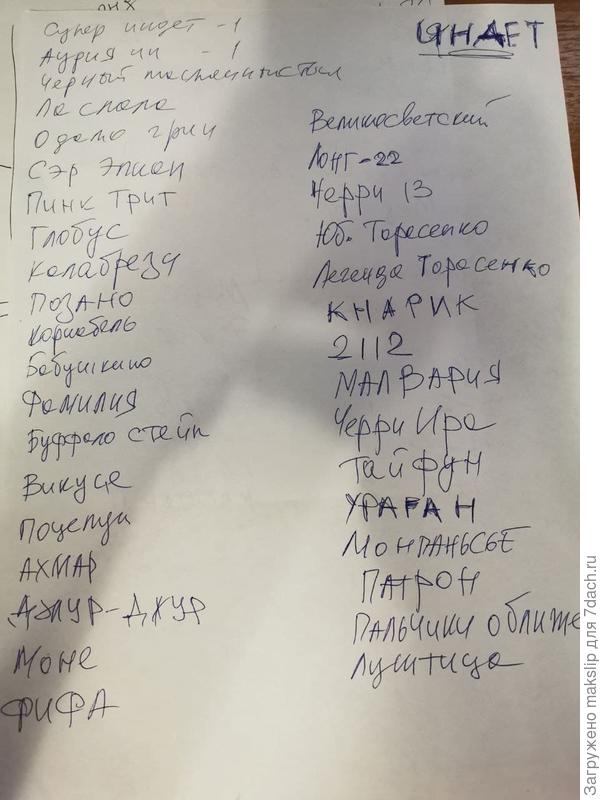 Супер индет - 1
Аурия ин - 1
Черный
Ла спала
Одамо грин
Сэр Элиан
Пинк Трит
Глобус
Калабреза
Позано
Корнабель
Бабушкино
Фамилия
Буффало стейк
Викуце
Поцелуи
АХМАР
Ажур-Джур
Моне
ФИФА
ЦНАЕТ
Великосветский
Лонг-22
Черри 13
Юб. Тарасенко
Легенда Тарасенко
КНАРИК
2112
МАЛВАРИЯ
Черри Ира
Тайфун
УРАГАН
Монпаньсье
Патрон
Пальчики оближе
Загружено makslip для 7dach.ru